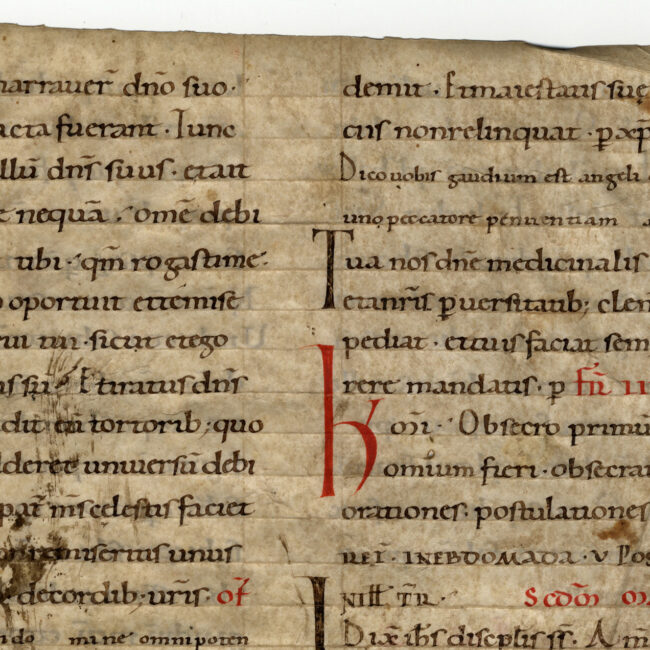 narrauer̄ dn̄o suo·
facta fuerant · Tunc
illū dn̄s suus · et ait
e nequā · om̄e debi
t ubi · qm̄ rogasti me·
o oportuit et te mise
tui tui · sicut et ego
us sū Et iratus dn̄s
didit eū tortorib; quo
dderet uniuersū debi
pat̄ m̄s celestis faciet
on remiseritis unus
decordib; ur̄is · of̄
ndo mine omnipoten
demit · Et maiestatis suę
cus non relinquat · ꝑ xp̄
Dico uobis gaudium est angeli
uno peccatore penitentiam
Tua nos dn̄e medicinalis
et anr̄is ꝑuersitatib; clem
pediat · et tuis faciat sem
rere mandatis · ꝑ fr̄i
k om̄i · Obsecro primū
omium fieri · obsecra
orationes · postulationes
REI · IN EBDOMADA · V Pos
IN ILL T̄R · Scdm̄
Dix̄ ih̄s discip̄lis s̄s · Am̄